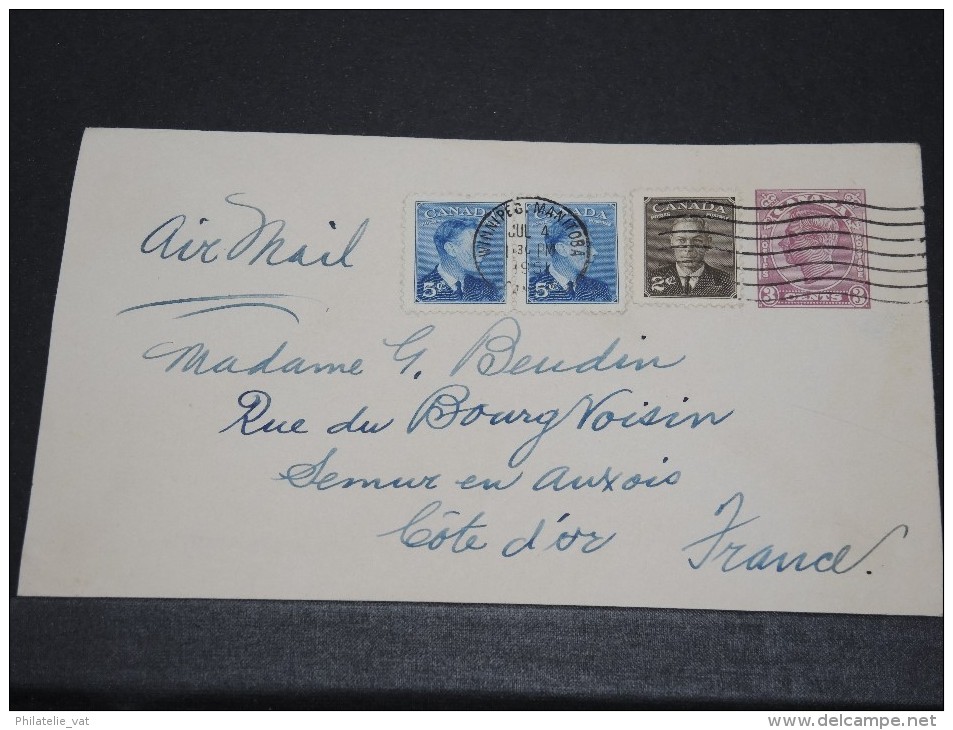 Air Mail
CANADA
POSTES POSTAGE
5¢
WINNIPEG MANITOBA
JUL 4
PM
5¢
CANADA
POSTES POSTAGE
2¢
3 CENTS 3
Madame G. Beudin
Rue du Bourg Voisin
Semur en Auxois
Côte d'or France.
Philatelie_vat
delcampe.net